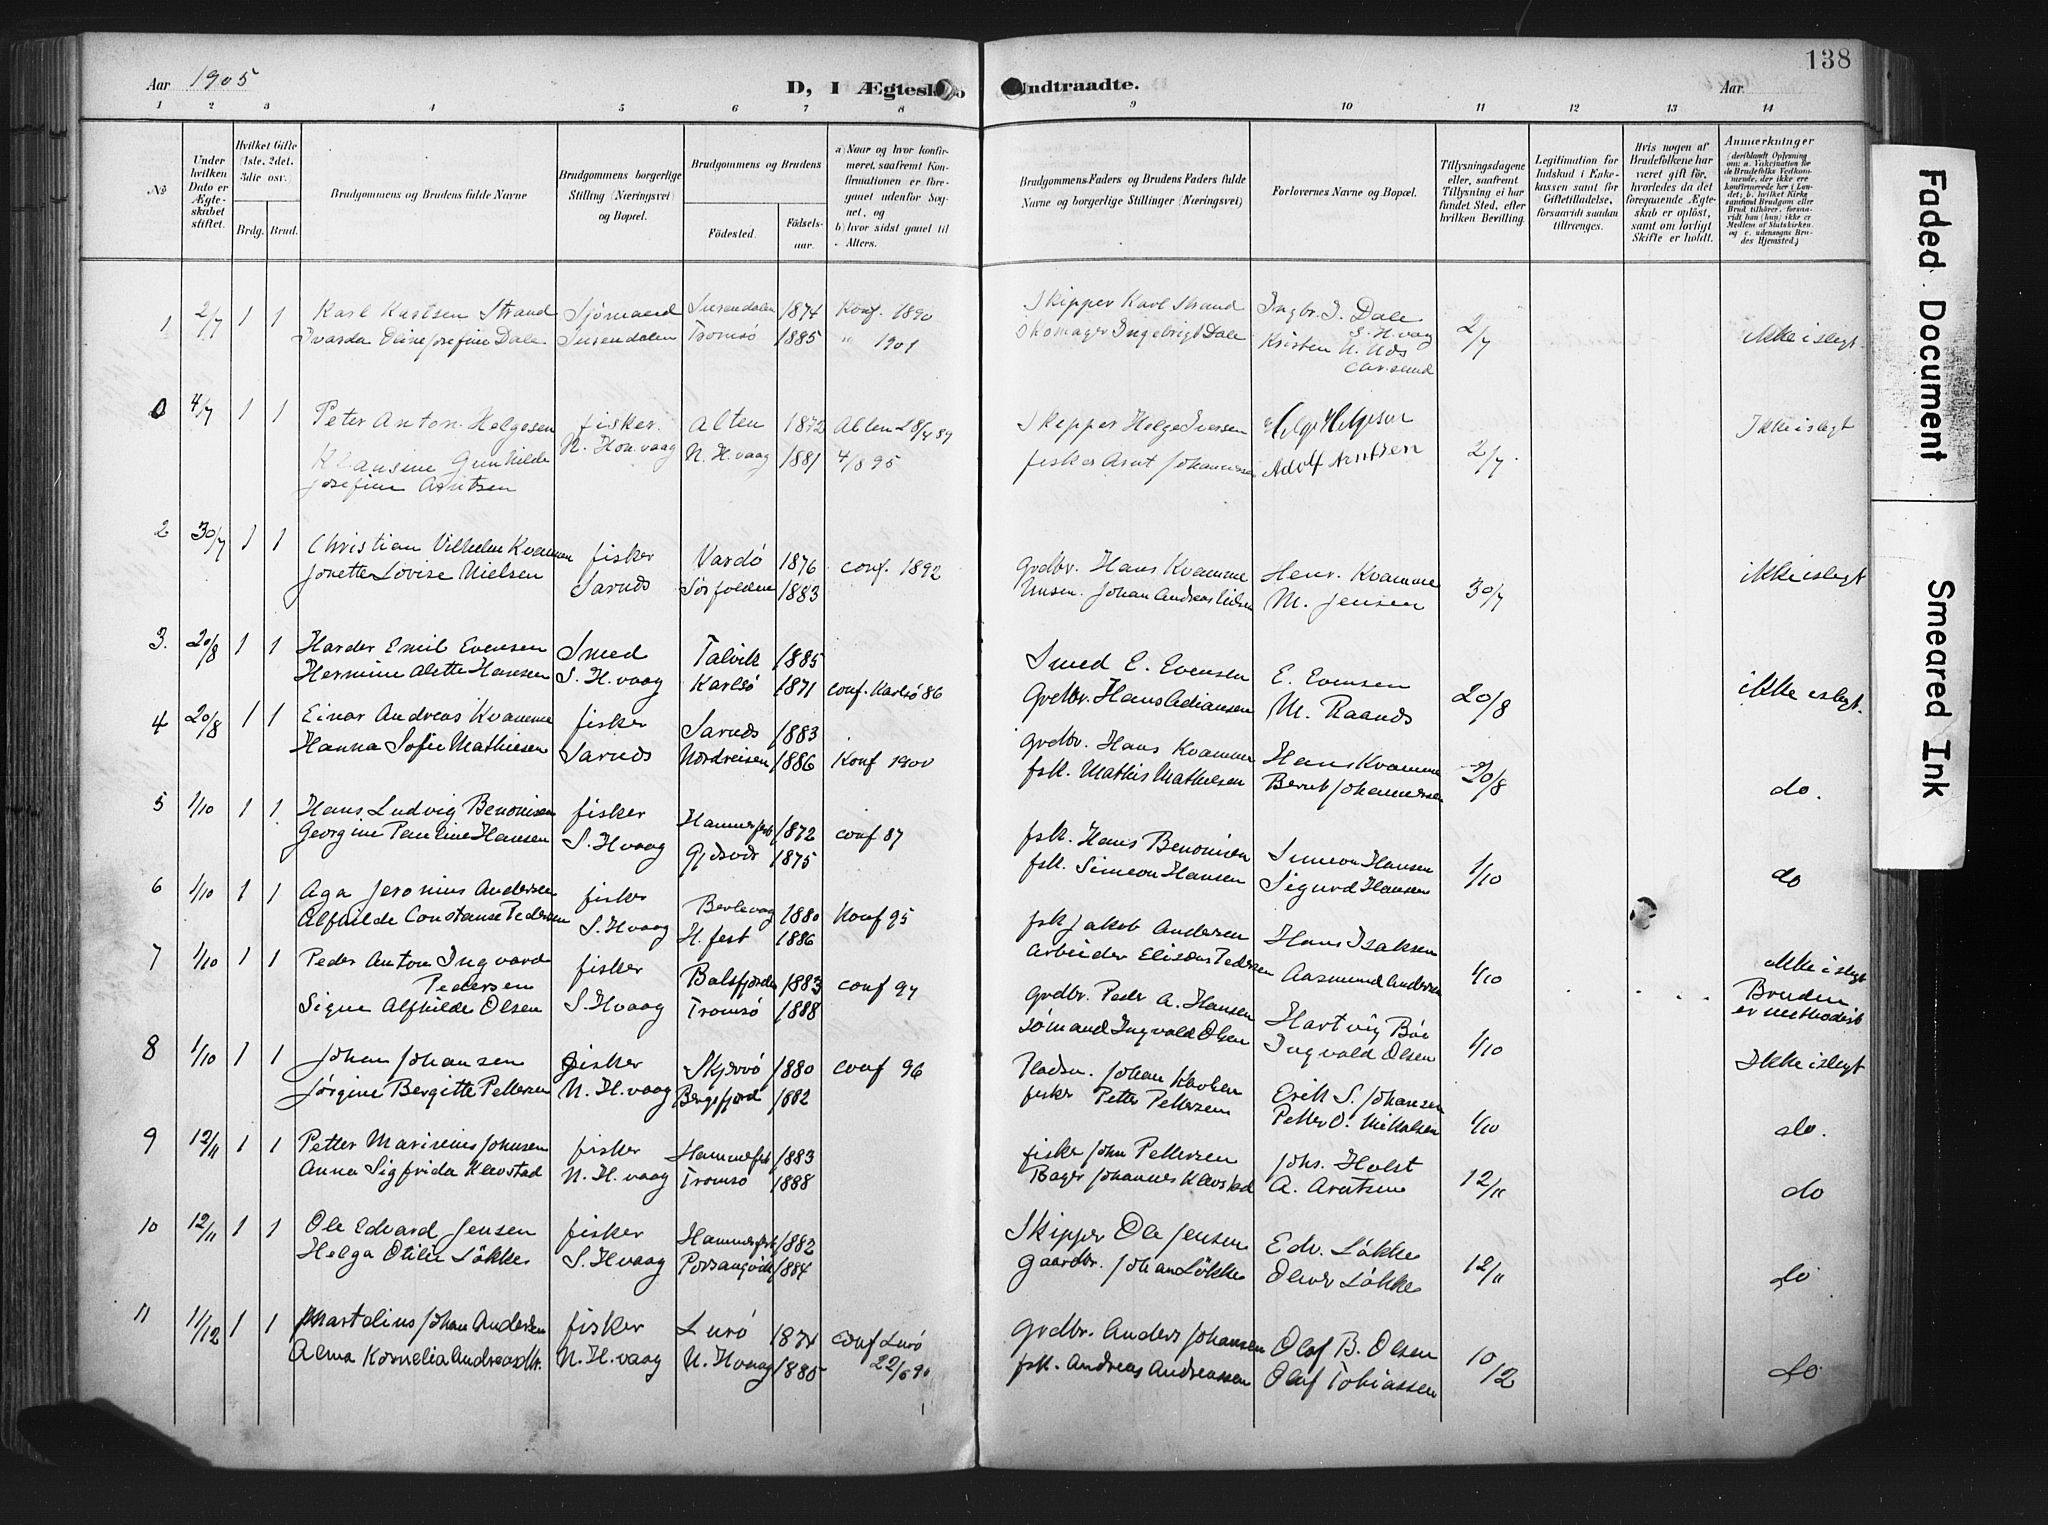 138
Aar 1905
D, I Ægtesk
Indtraadte.
Aar
1 2 3 4 5 6 7 8 9 10 11 12 13 14
No
Under hvilken Dato er Ægteskabet stiftet.
Hvilket Gifte (1ste, 2det, 3die osv.)
Brdg. Brud.
Brudgommens og Brudens fulde Navne
Brudgommens borgerlige Stilling (Næringsvei) og Bopæl.
Brudgommens og Brudens
Fødested.
Fødselsaar.
a) Naar og hvor konfirmeret, saafremt Konfirmationen er foregaaet udenfor Sognet, og
b) hvor sidst gaaet til Alters.
Brudgommens Faders og Brudens Faders fulde Navne og borgerlige Stillinger (Næringsvei)
Forlovernes Navne og Bopæl.
Tillysningsdagene eller, saafremt Tillysning ei har fundet Sted, efter hvilken Bevilling.
Legitimation for Indskud i Enkekassen samt for Giftetilladelse, forsaavidt saadan tiltrænges.
Hvis nogen af Brudefolkene har været gift før, hvorledes da det foregaaende Ægteskab er opløst, samt om lovligt Skifte er holdt.
Anmerkninger
(deriblandt Oplysning om: a. Vakcination for de Brudefolks Vedkommende, der ikke ere konfirmerede her i Landet; b. hvilket Kirkesamfund Brudgom eller Brud tilhører, forsaavidt han (hun) ikke er Medlem af Statskirken, og c. udensogns Brudes Hjemsted.)
1 2/7 1 1 Karl Karlsen Strand Sjømand Surendalen 1874 Konf. 1890 Skipper Karl Strand Ingbr. I. Dale
Oline Josefine Dale Surendalen Tromsö 1885 " 1901 Skomager Ingebrigt Dale S. H.vaag 2/7 ikke i slegt.
Kristen N.
4/7 1 1 Peter Anton Helgesen fisker Alten 1872 Alten Skipper Helge Iversen Helge Helgesen Ikke i slegt
Klausine Gunhilde N. Hon.vaag N. H.vaag 1881 4/8 95 fisker Arnt Johannessen Adolf Arntsen 2/7
Josefine Arntsen
2 30/7 1 1 Christian Vilhelm Kvamme fisker Vardö 1876 conf. 1892 Grdbr. Hans Kvamme Henr. Kvamme 30/7 ikke i slegt
Jonette Lovise Nielsen Sarnes Sørfolden 1883 Johan Andreas M. Jensen
3. 20/8 1 1 Harder Emil Evensen Smed Talvik 1885 Smed E. Evensen E. Evensen
Hermine Alette Hansen S. H.vaag Karlsö 1871 conf. Karlsö 86 Grdbr. Hans M. Raanes 20/8 ikke i slegt.
4 20/8 1 1 Einar Andreas Kvamme fisker Sarnes 1883 Grdbr. Hans Kvamme Hans Kvamme
Hanna Sofie Mathiesen Sarnes Nordreisen 1886 Konf 1900 fsk. Mathis Mathiesen Bernt Johannessen 20/8 do.
5 1/10 1 1 Hans Ludvig Benonisen fisker Hammerfest 1872 conf 87 fsk. Hans Benonisen Simeon Hansen
Georgine Pauline Hansen S. Hvaag Gjesvær 1875 fsk. Simeon Hansen Sigurd Hansen 1/10 do
6 1/10 1 1 Aga Jeronius Andersen fisker Berlevaag 1880 Konf 95 fsk Jakob Andersen Hans Isaksen
Alfhilde Constanse Pedersen S. Hvaag H. fest 1886 Arbeider Elisæus Pedersen Aasmund Andersen 1/10 ikke i slegt
7 1/10 1 1 Peder Anton Ingvard fisker Balsfjorden 1883 conf 97 Grdbr. Peder A. Hansen Hartvig Böe Bruden
Pedersen
Signe Alfhilde Olsen S. Hvaag Tromsö 1888 Sömand Ingvald Olsen Ingvald Olsen 1/10 er methodist
8 1/10 1 1 Johan Johansen fisker Skjervö 1880 conf 96 Pladsm. Johan Erik S. Johansen Ikke i slegt
Jørgine Bergitte Pettersen N. H.vaag Bergsfjord 1882 fisker Petter Pettersen Petter O. Mikkelsen 1/10 do.
9 12/11 1 1 Petter Marinius Johnsen fisker Hammerfest 1883 fisker John Pettersen Johs. Holst
Anna Sigfrida Kavstad N. H.vaag Tromsö 1888 Bager Johannes Kavstad A. Arntsen 12/11 do
10 12/11 1 1 Ole Edvard Jensen fisker Hammerfest 1882 Skipper Ole Jensen Edv. Løkke
Helga Otilie Løkke S. Hvaag Porsangvik 1884 Gaardbr. Johan Løkke Oluf Løkke 12/11 do
11 11/12 1 1 Martelius Johan Andersen fisker Lurö 1874 conf Lurö Grdbr. Anders Johansen Olaf B. Olsen
Alma Kornelia Andreasdtr. N. H.vaag N. Hvaag 1885 22/6 90 fsk. Andreas Andreassen Oluf Tobiassen 10/12 do
Faded Document
Smeared Ink